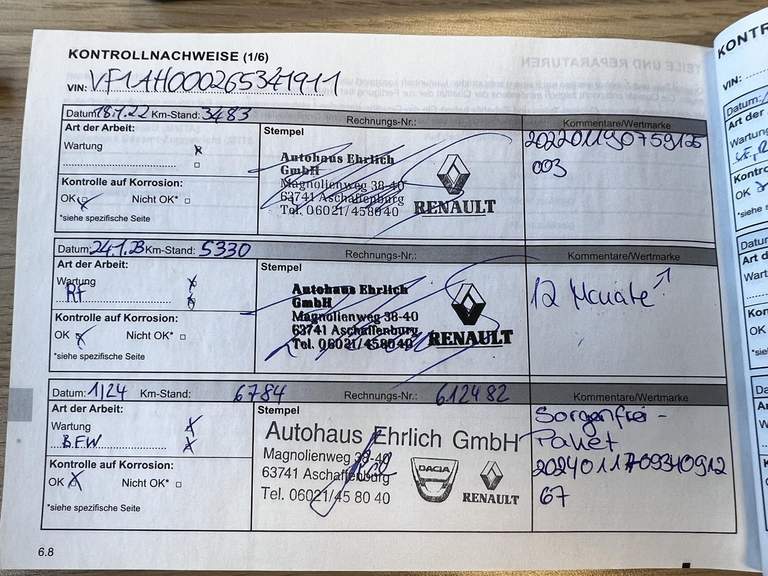 KONTROLLNACHWEISE (1/6)
VIN: VF1AH000265341911
Datum: 18.1.22 Km-Stand: 3483 Rechnungs-Nr.: Kommentare/Wertmarke
Art der Arbeit:
Wartung
Kontrolle auf Korrosion:
OK Nicht OK*
*siehe spezifische Seite
Stempel
Autohaus Ehrlich
GmbH
Magnolienweg 38-40
63741 Aschaffenburg
Tel. 06021/458040
RENAULT
202201190759125
003
Datum: 24.1.23 Km-Stand: 5330 Rechnungs-Nr.: Kommentare/Wertmarke
Art der Arbeit:
Wartung
RF
Kontrolle auf Korrosion:
OK Nicht OK*
*siehe spezifische Seite
Stempel
Autohaus Ehrlich
GmbH
Magnolienweg 38-40
63741 Aschaffenburg
Tel. 06021/458040
RENAULT
12 Monate
Datum: 1/24 Km-Stand: 6784 Rechnungs-Nr.: 612482 Kommentare/Wertmarke
Art der Arbeit:
Wartung
BFW
Kontrolle auf Korrosion:
OK Nicht OK*
*siehe spezifische Seite
Stempel
Autohaus Ehrlich GmbH
Magnolienweg 38-40
63741 Aschaffenburg
Tel. 06021/45 80 40
DACIA
RENAULT
Sorgenfrei-
Paket
2024011709340912
67
6.8
VIN:
Datum:
Art der
Wartung
OK
*siehe